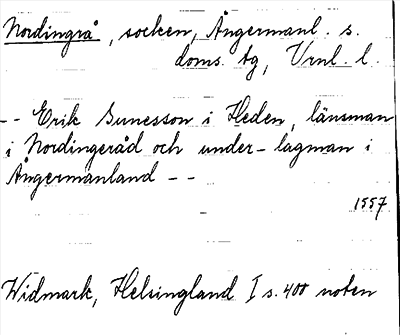 Nordingrå, socken, Ångermanl. s.
doms. tg, Vrnl. l.
-- Erik Sunesson i Heden, länsman
i Nordingeråd och under-lagman i
Ångermanland --
1557
Widmark, Helsingland I s. 400 noten